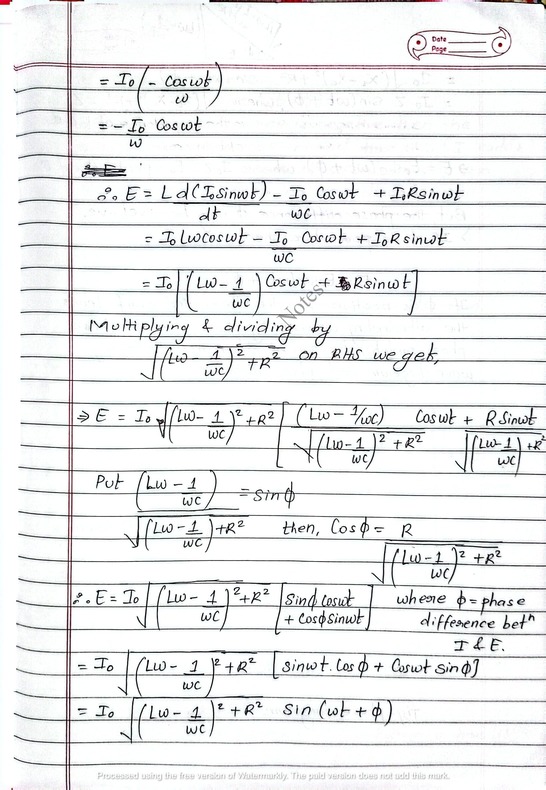 Date
Page
= I₀ (- Cosωt / ω)
= - I₀/ω Cosωt
∴ E = L d(I₀sinωt)/dt - I₀/ωC Cosωt + I₀Rsinωt
= I₀Lωcosωt - I₀/ωC Cosωt + I₀Rsinωt
= I₀ [(Lω - 1/ωC) Cosωt + Rsinωt]
Notes
Multiplying & dividing by
√((Lω - 1/ωC)² + R²) on RHS we get,
⇒ E = I₀ √((Lω - 1/ωC)² + R²) [(Lω - 1/ωC) / √((Lω - 1/ωC)² + R²) Cosωt + R Sinωt / √((Lω - 1/ωC) + R²
Put (Lω - 1/ωC) / √((Lω - 1/ωC) + R²) = sinϕ
then, Cosϕ = R / √((Lω - 1/ωC)² + R²)
∴ E = I₀ √((Lω - 1/ωC)² + R²) [Sinϕ cosωt + cosϕ sinωt]
where ϕ = phase
difference betⁿ
I & E.
= I₀ √((Lω - 1/ωC)² + R²) [sinωt. Cosϕ + Cosωt sinϕ]
= I₀ √((Lω - 1/ωC)² + R²) sin (ωt + ϕ)
Processed using the free version of Watermarkly. The paid version does not add this mark.